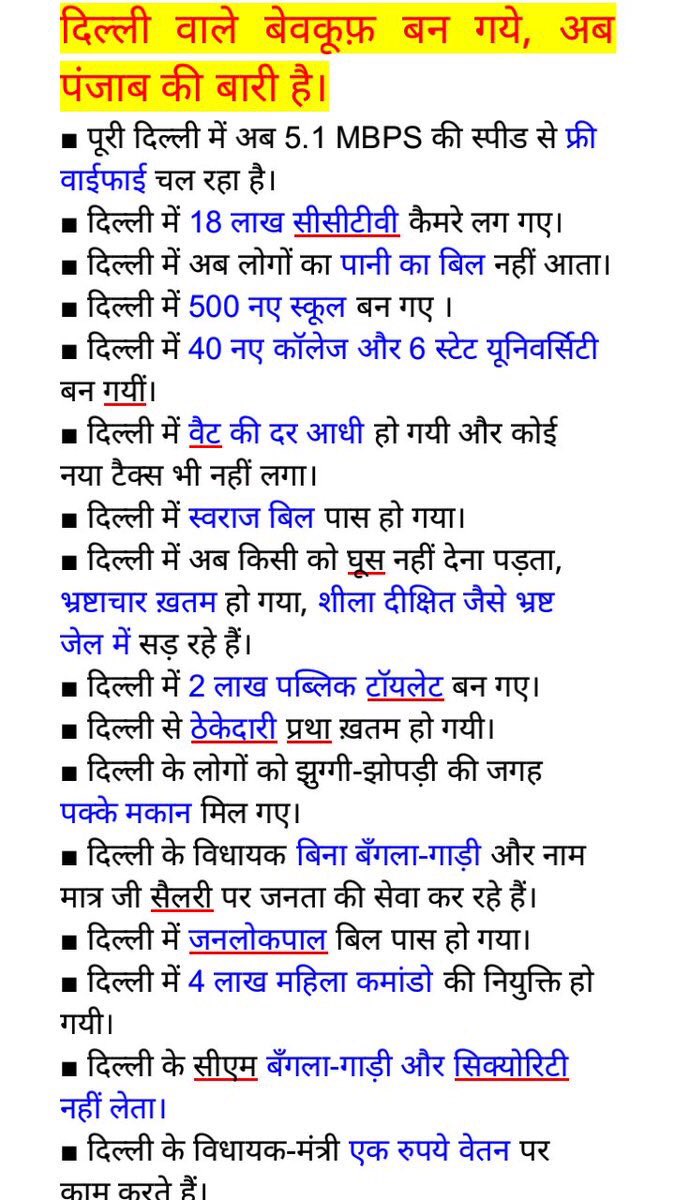 दिल्ली वाले बेवकूफ़ बन गये, अब
पंजाब की बारी है।
■ पूरी दिल्ली में अब 5.1 MBPS की स्पीड से फ्री
वाईफाई चल रहा है।
■ दिल्ली में 18 लाख सीसीटीवी कैमरे लग गए।
■ दिल्ली में अब लोगों का पानी का बिल नहीं आता।
■ दिल्ली में 500 नए स्कूल बन गए ।
■ दिल्ली में 40 नए कॉलेज और 6 स्टेट यूनिवर्सिटी
बन गयीं।
■ दिल्ली में वैट की दर आधी हो गयी और कोई
नया टैक्स भी नहीं लगा।
■ दिल्ली में स्वराज बिल पास हो गया।
■ दिल्ली में अब किसी को घूस नहीं देना पड़ता,
भ्रष्टाचार ख़तम हो गया, शीला दीक्षित जैसे भ्रष्ट
जेल में सड़ रहे हैं।
■ दिल्ली में 2 लाख पब्लिक टॉयलेट बन गए।
■ दिल्ली से ठेकेदारी प्रथा ख़तम हो गयी।
■ दिल्ली के लोगों को झुग्गी-झोपड़ी की जगह
पक्के मकान मिल गए।
■ दिल्ली के विधायक बिना बँगला-गाड़ी और नाम
मात्र जी सैलरी पर जनता की सेवा कर रहे हैं।
■ दिल्ली में जनलोकपाल बिल पास हो गया।
■ दिल्ली में 4 लाख महिला कमांडो की नियुक्ति हो
गयी।
■ दिल्ली के सीएम बँगला-गाड़ी और सिक्योरिटी
नहीं लेता।
■ दिल्ली के विधायक-मंत्री एक रुपये वेतन पर
काम करते हैं।